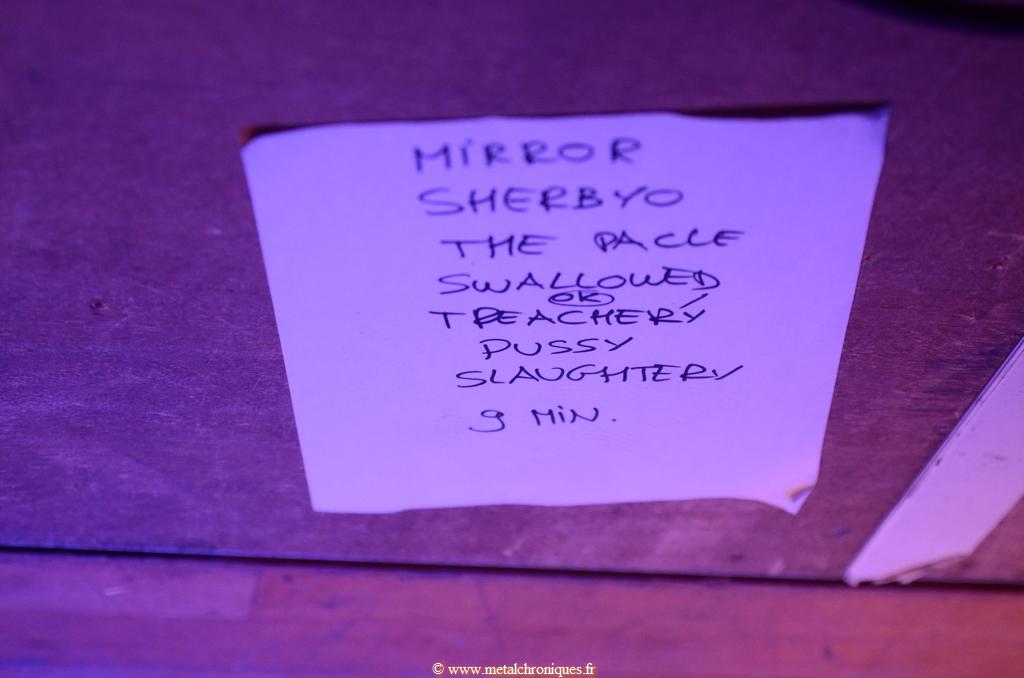 MIRROR
SHERBYO
THE PACLE
SWALLOWED
OK
TREACHERY
PUSSY
SLAUGHTERY
9 MIN.
© www.metalchroniques.fr